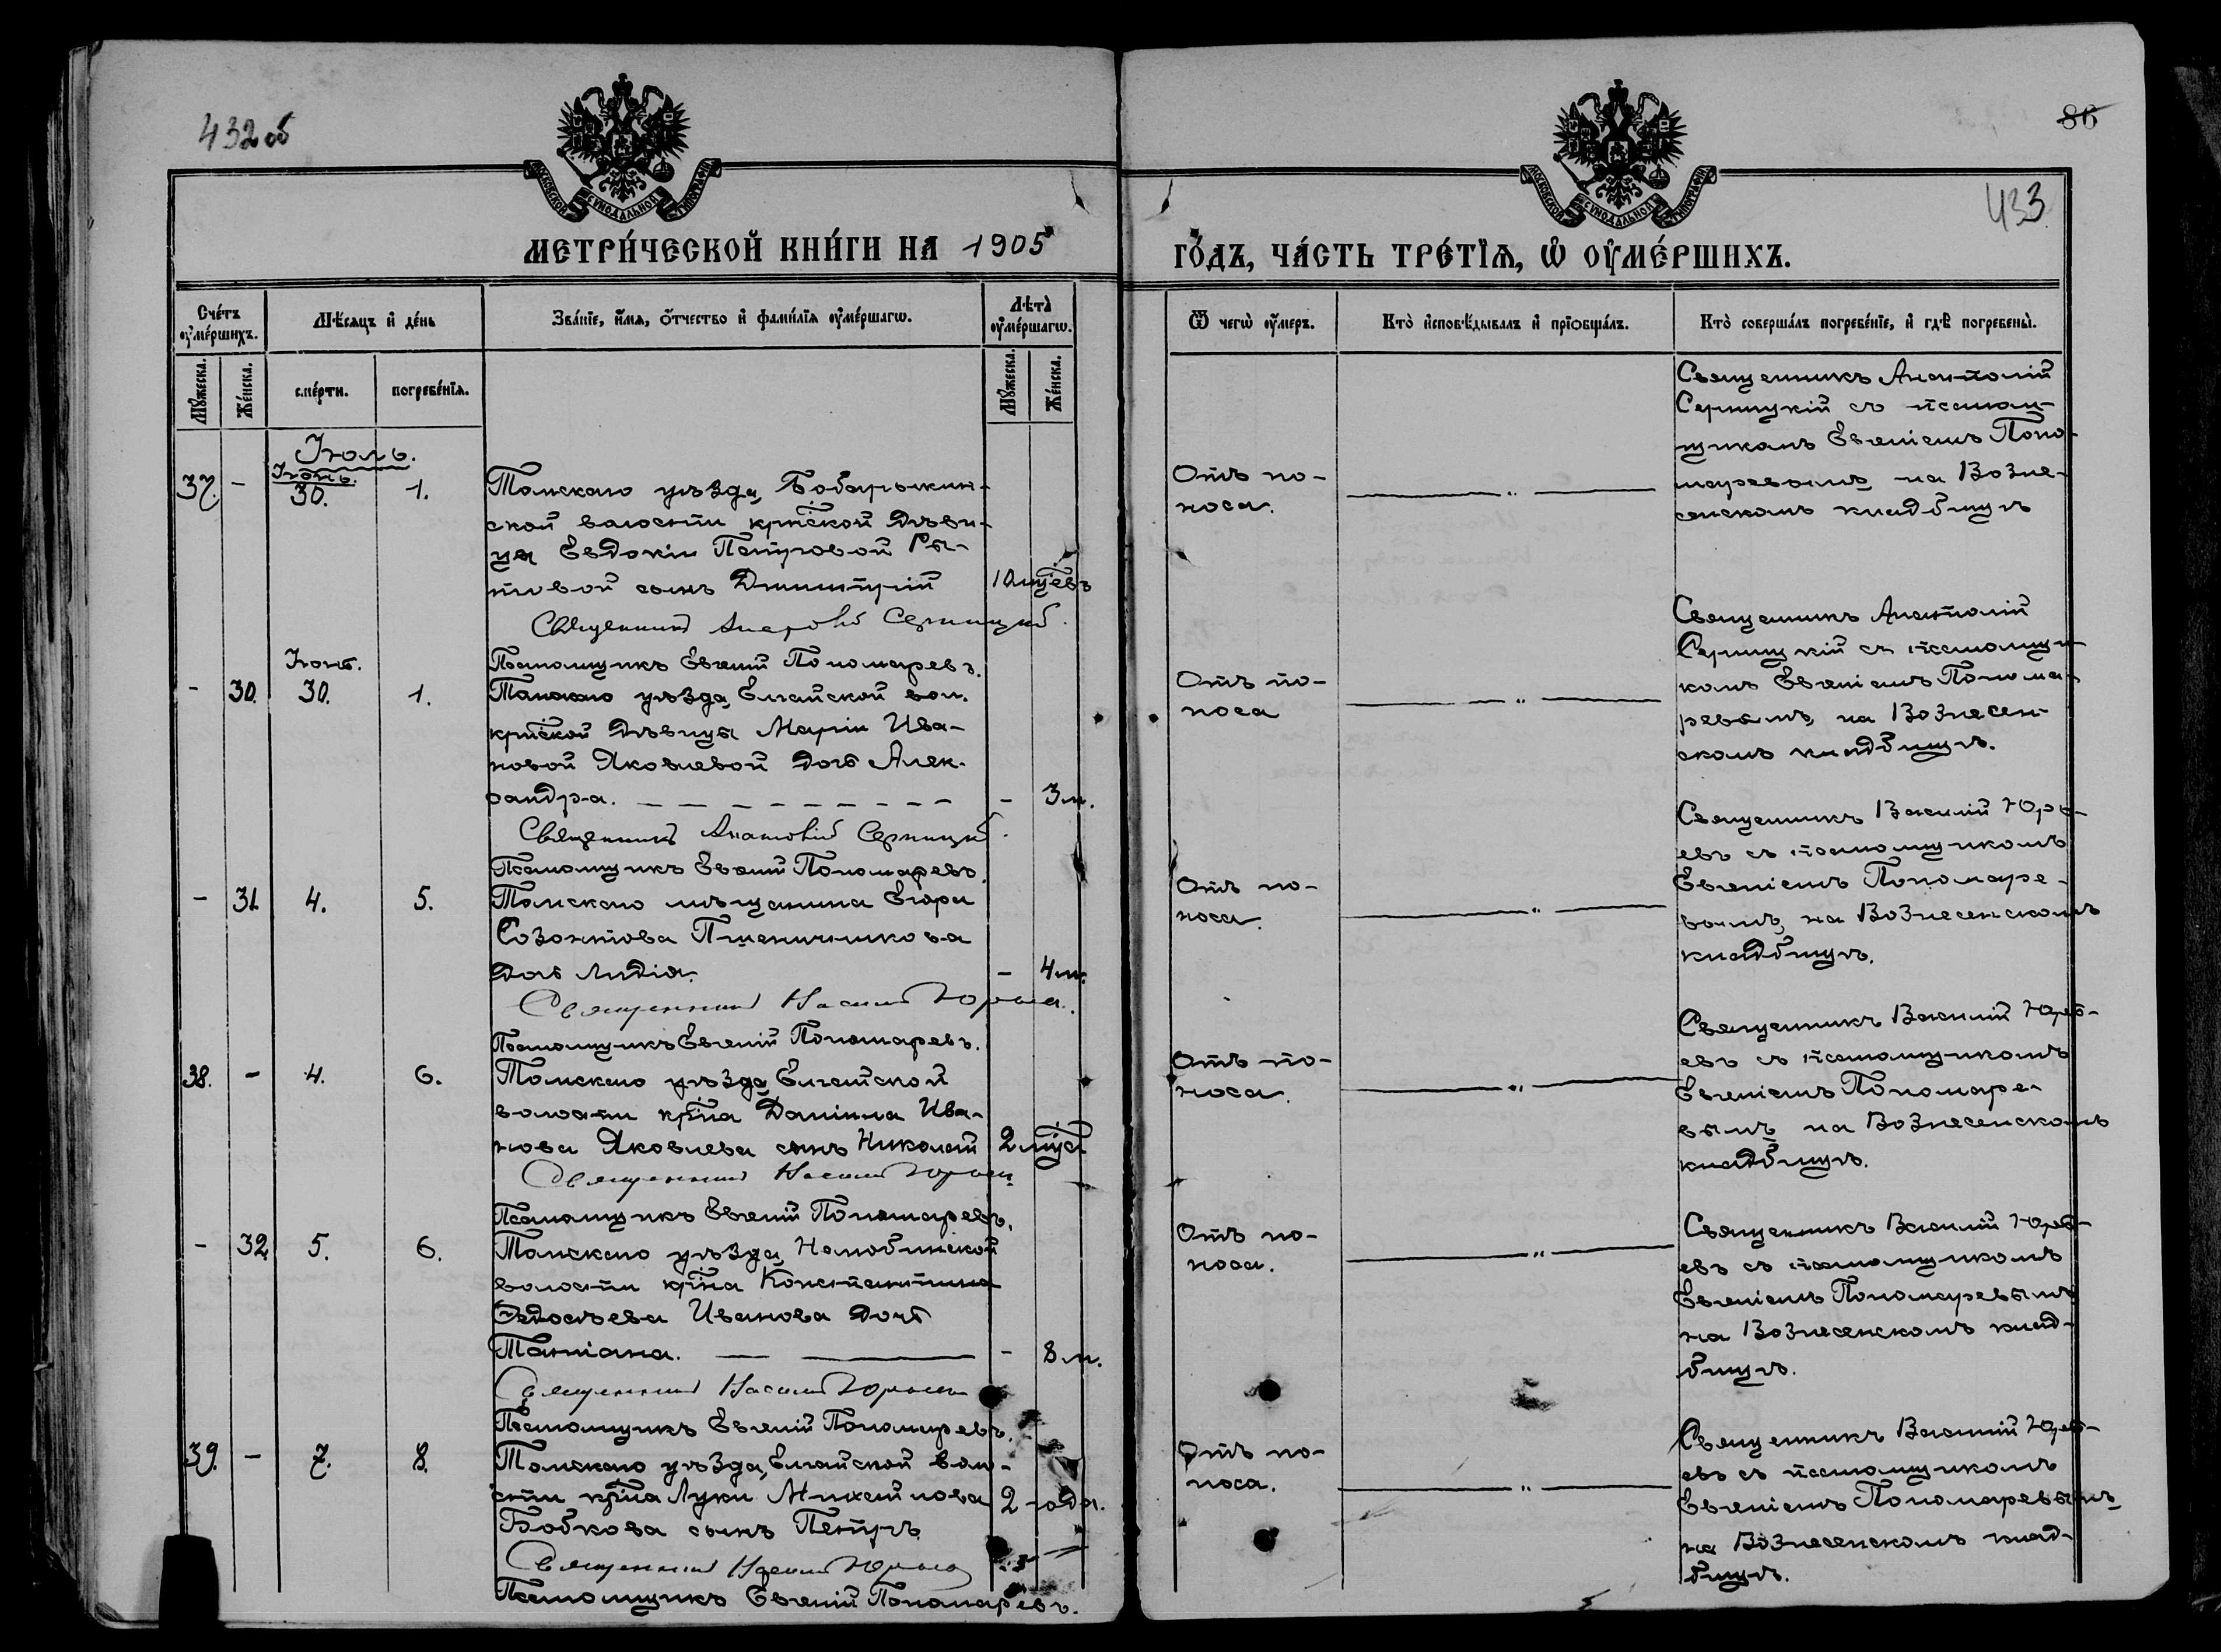 432 об
86
433
МОСКОВСКОЙ СѴНОДАЛЬНОЙ ТИПОГРАФІИ
МОСКОВСКОЙ СѴНОДАЛЬНОЙ ТИПОГРАФІИ
МЕТРИ́ЧЕСКОЙ КНИ́ГИ НА 1905
ГО́ДЪ, ЧА́СТЬ ТРЕ́ТЇѦ, Ѡ҆ ОУ҆МЕ́РШИХЪ.
Сче́тъ оу҆ме́ршихъ.
Мѣ́сѧцъ и҆ де́нь
Зва́нїе, и҆́мѧ, ѻ҆́тчество и҆ фами́лїѧ оу҆ме́ршагѡ.
Лѣ́та оу҆ме́ршагѡ.
Ѿ чегѡ̀ оу҆́меръ.
Кто̀ и҆сповѣ́дывалъ и҆ прїѡбща́лъ.
Кто̀ соверша́лъ погребе́нїе, и҆ гдѣ̀ погребены̀.
Мꙋ́жеска.
Же́нска.
сме́рти.
погребе́нїѧ.
Мꙋ́жеска.
Же́нска.
Іюль.
37. - Іюнь. 30. 1.
Томскаго уѣзда, Бобарыкин-
ской волости крест҃ской дѣви-
цы Евдокіи Петровой Ры-
товой сынъ Димитрій 10 мцевъ
Священникъ Анатолій Серницкій.
Псаломщикъ Евгеній Пономаревъ.
Отъ по-
носа. — „ —
Священникъ Анатолій
Серницкій съ псалом-
щикомъ Евгеніемъ Поно-
маревымъ, на Возне-
сенскомъ кладбищѣ
- 30. Іюнь. 30. 1.
Томскаго уѣзда, Елгайской вол.
крест҃ской дѣвицы Маріи Ива-
новой Яковлевой дочь Алек-
сандра. — — — — — — — — - 3 м.
Священникъ Анатолій Серницкій.
Псаломщикъ Евгеній Пономаревъ.
Отъ по-
носа — „ —
Священникъ Анатолій
Серницкій съ псаломщи-
комъ Евгеніемъ Понома-
ревымъ, на Вознесен-
скомъ кладбищѣ.
- 31. 4. 5.
Томскаго мѣщанина Егора
Созонтова Пшеничникова
дочь Лидія. - 4 м.
Священникъ Василій Юрьевъ.
Псаломщикъ Евгеній Пономаревъ.
Отъ по-
носа. — „ —
Священникъ Василій Юрь-
евъ съ псаломщикомъ
Евгеніемъ Пономаре-
вымъ, на Вознесенскомъ
кладбищѣ.
38. - 4. 6.
Томскаго уѣзда, Елгайской
волости кр҃на Даніила Ива-
нова Яковлева сынъ Николай 2 мца
Священникъ Василій Юрьевъ
Псаломщикъ Евгеній Пономаревъ.
Отъ по-
носа. — „ —
Священникъ Василій Юрь-
евъ съ псаломщикомъ
Евгеніемъ Пономаре-
вымъ на Вознесенскомъ
кладбищѣ.
- 32. 5. 6.
Томскаго уѣзда, Нелюбинской
волости кр҃на Константина
Ѳедосѣева Иванова дочь
Татіана. — — - 8 м.
Священникъ Василій Юрьевъ
Псаломщикъ Евгеній Пономаревъ.
Отъ по-
носа. — „ —
Священникъ Василій Юрь-
евъ съ псаломщикомъ
Евгеніемъ Пономаревымъ
на Вознесенскомъ клад-
бищѣ.
39. - 7. 8.
Томскаго уѣзда, Елгайской воло-
сти кр҃на Луки Михайлова 2 года.
Бобкова сынъ Петръ.
Священникъ Василій Юрьевъ
Псаломщикъ Евгеній Пономаревъ.
Отъ по-
носа. — „ —
Священникъ Василій Юрь-
евъ съ псаломщикомъ
Евгеніемъ Пономаревымъ
на Вознесенскомъ клад-
бищѣ.